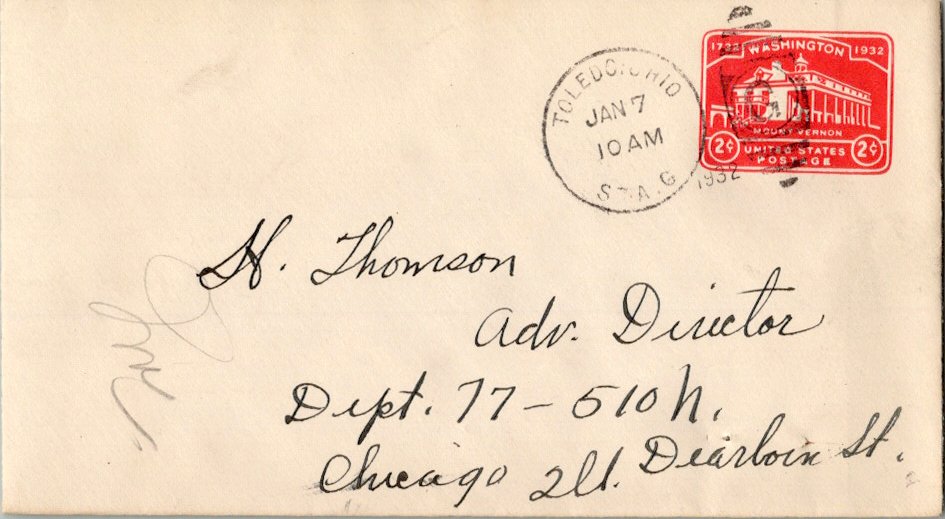 1732 WASHINGTON 1932
MOUNT VERNON
2¢ UNITED STATES 2¢
POSTAGE
TOLEDO, OHIO
JAN 7
10 AM
STA. G
1932
H. Thomson
Adv. Director
Dept. 77 - 510 N.
Dearborn St.
Chicago Ill.